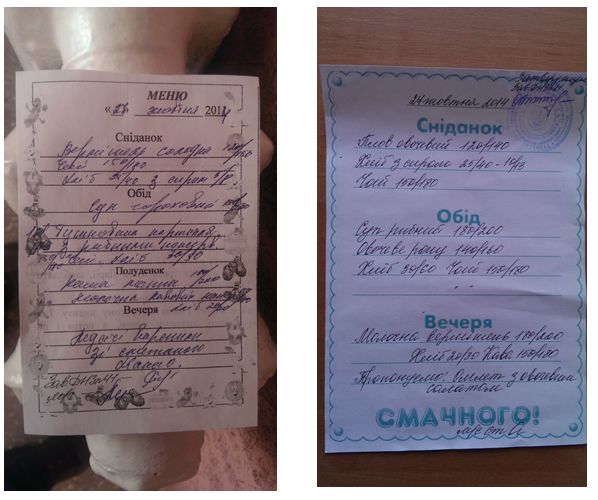 МЕНЮ
«28 жовтня 2014
Сніданок
Вермішель солодка 120/150
Чай 150/180
Хліб з сиром
Обід
Суп гороховий
Тушкована картопля
з рибними консерв.
Чай хліб 30/80
Полуденок
Каша манна
Молочна
Вечеря
Ледачі вареники
зі сметаною
Какао.
Зав ДНЗ№41
м/с
Затверджую
Зав.ДНЗ№
24 жовтня 2014
Сніданок
Плов овочевий 120/140
Хліб з сиром 25/40-10/13
Чай 150/180
Обід
Суп рибний 180/200
Овочеве рагу 140/160
Хліб 30/60 Чай 150/180
Вечеря
Молочна вермішель 180/200
Хліб 20/30 Кава 150/180
Пропонуємо: Омлет з овочевим
салатом
СМАЧНОГО!
м/с ст.